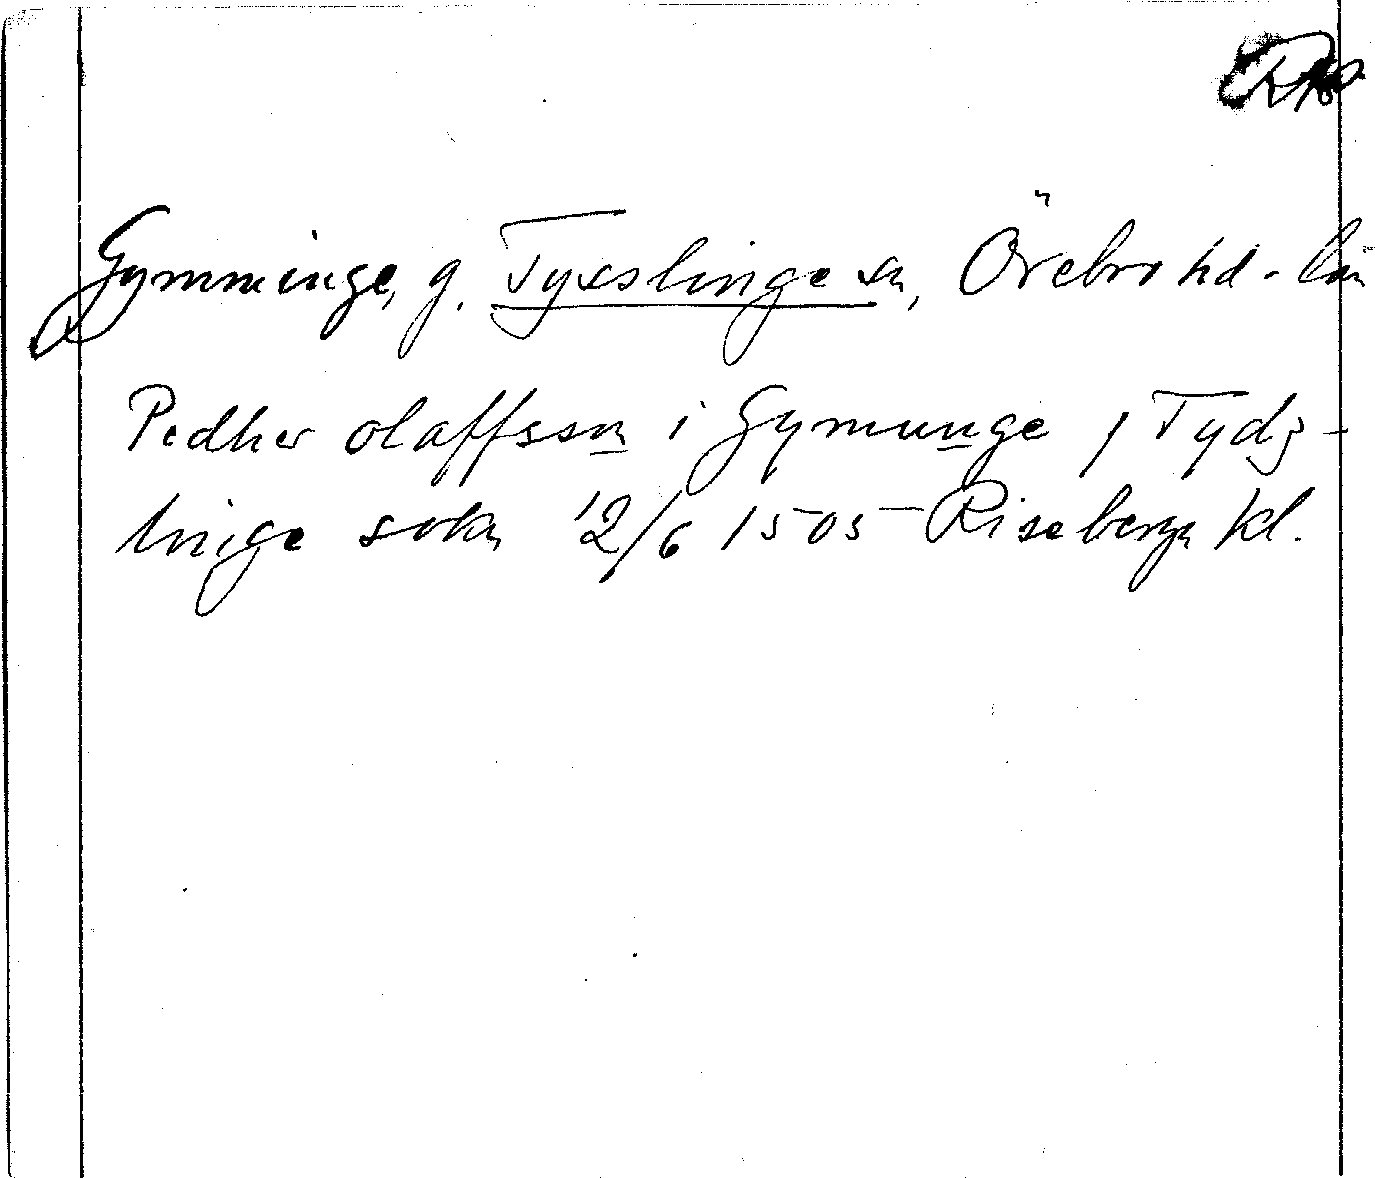 Gymminge, g. Tysslinge sn, Örebro hd - län
Pedher olaffssn i Gymunge / Tydz-
linge sokn 12/6 1505 Riseberga kl.